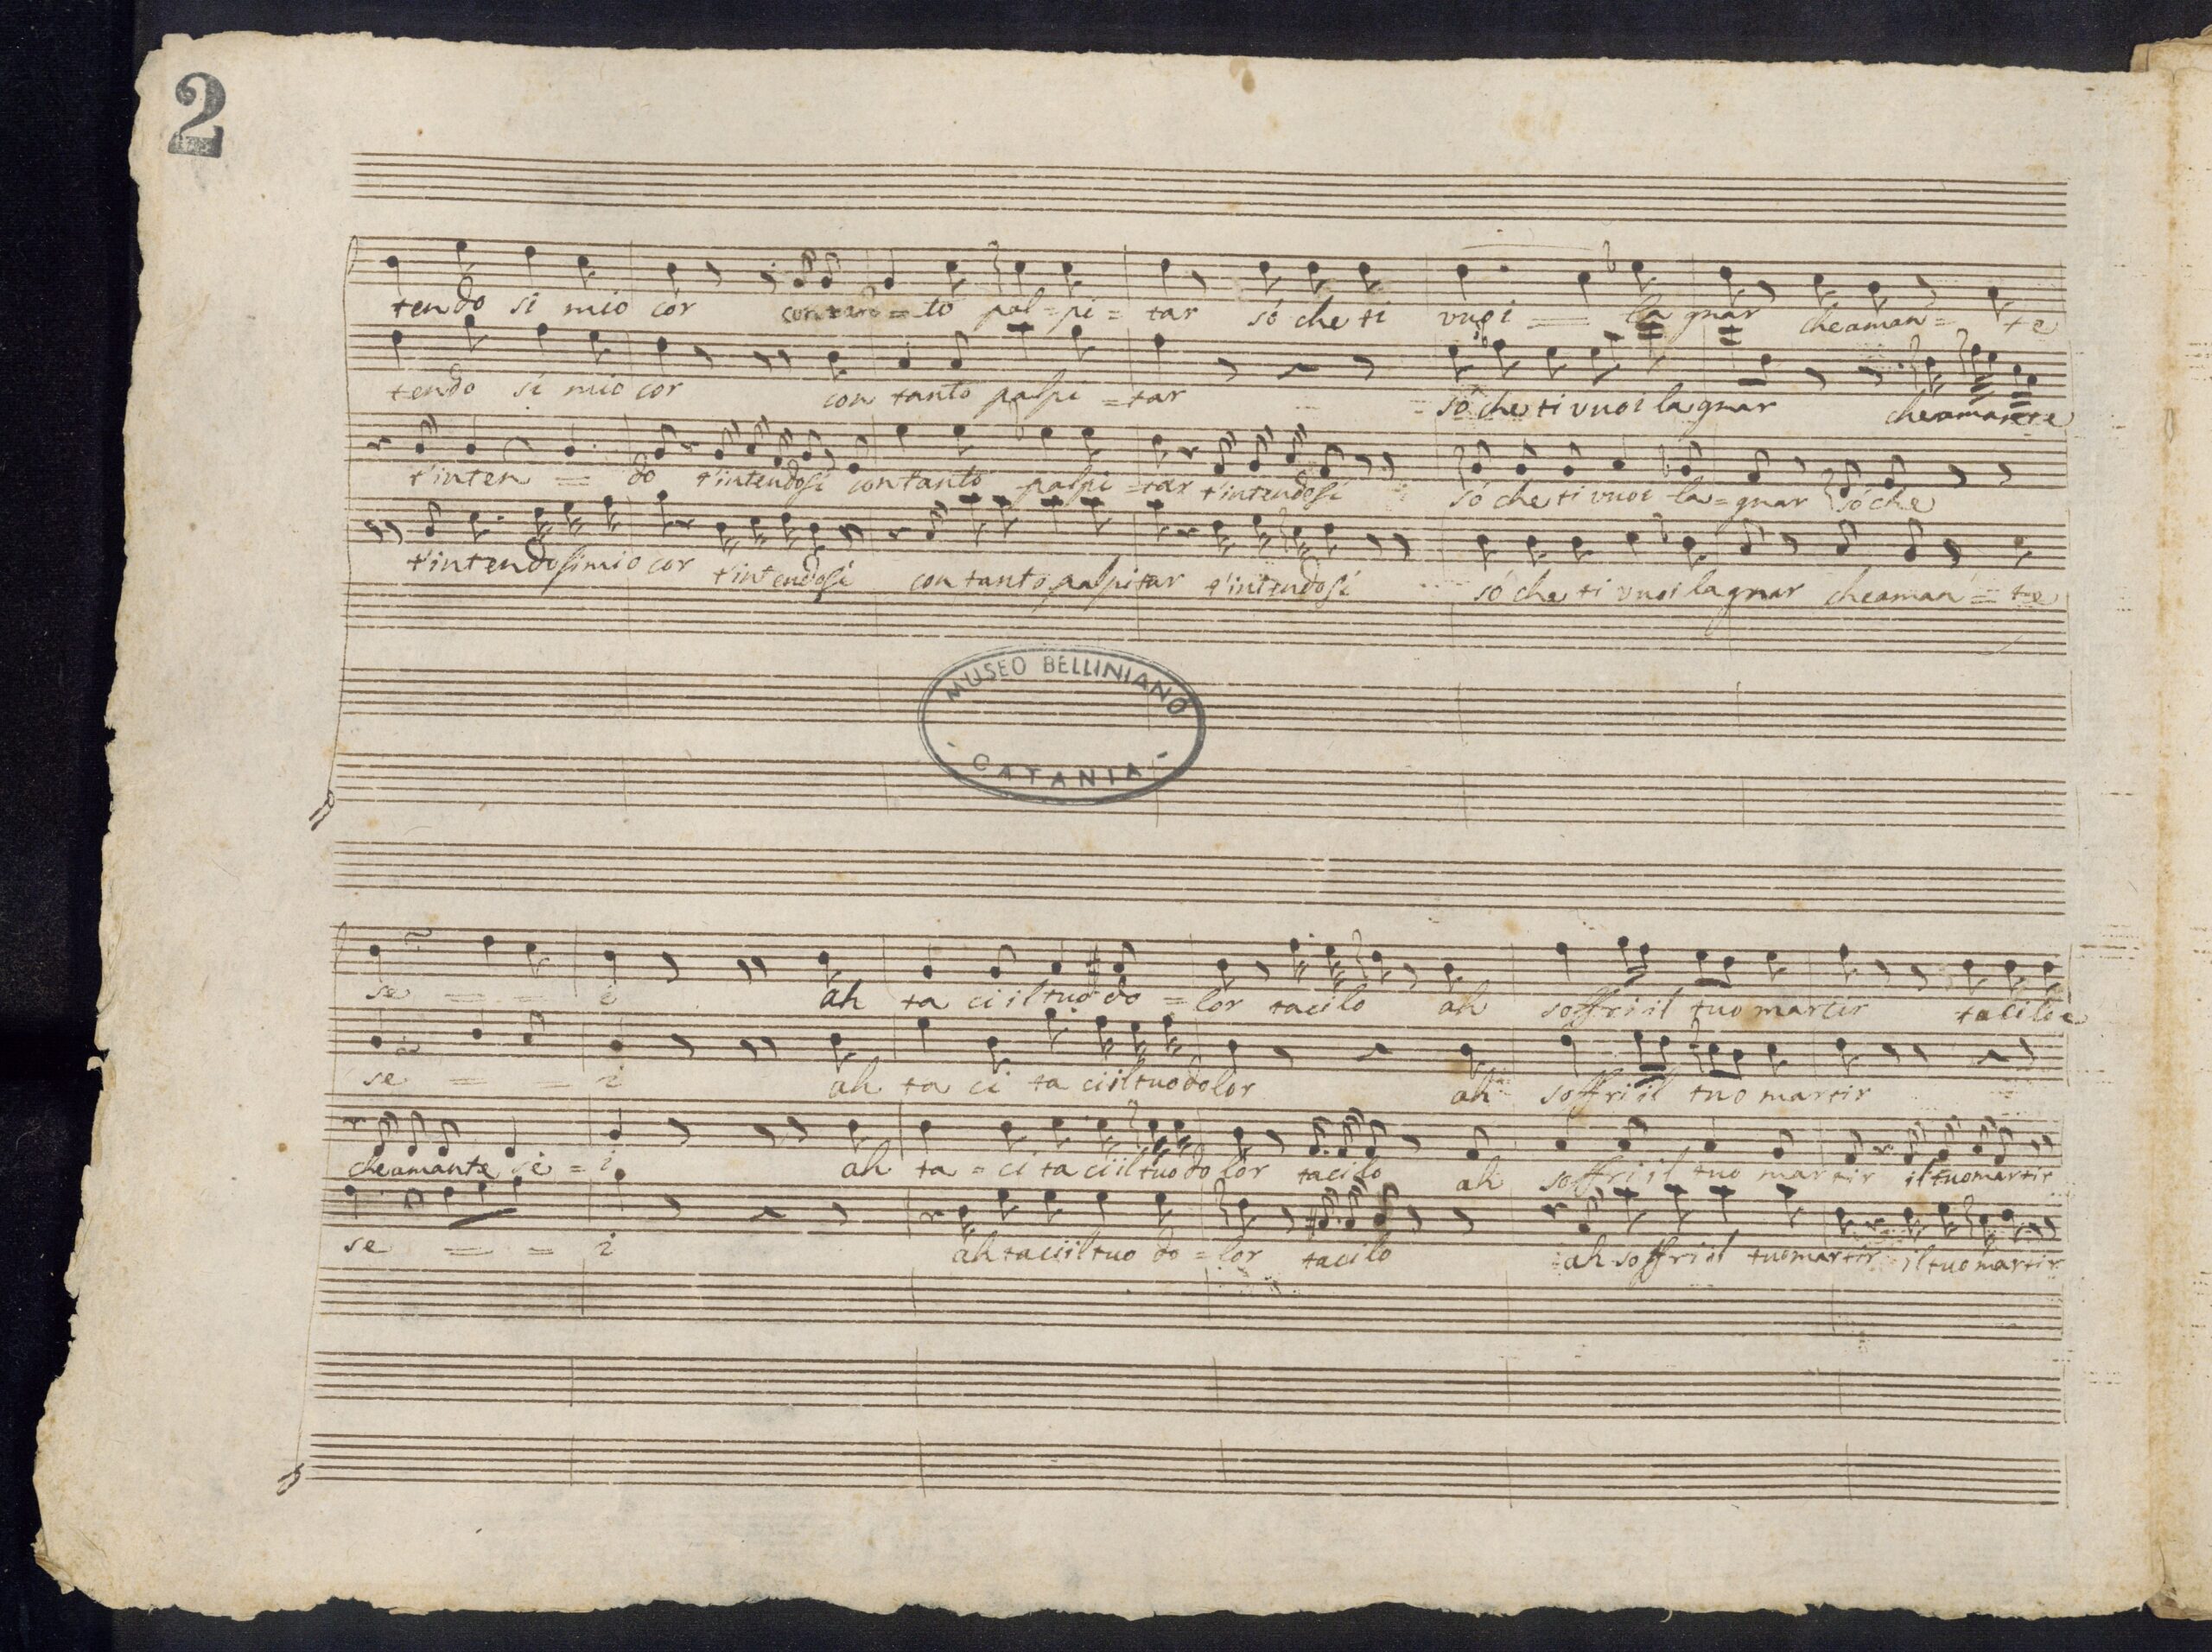 2
tendo si mio cor con tan = to pal = pi = tar só che ti vuoi = la gnar che aman = te
tendo si mio cor con tanto palpi = tar só che ti vuoi la gnar che amante
t'inten = do t'intendo si con tanto palpi = tar t'intendo si só che ti vuoi la = gnar só che
t'intendo si mio cor t'intendo si con tanto palpitar t'intendo si só che ti vuoi lagnar che aman = te
MUSEO BELLINIANO
- CATANIA -
se = = i ah ta ci il tuo do = lor taci lo ah soffri il tuo martir taci lo e
se = = i ah ta ci ta ci il tuo dolor ah soffri il tuo martir
che amante se = i ah ta = ci ta ci il tuo do lor taci lo ah soffri il tuo martir il tuo martir
se = = i ah taci il tuo do = lor taci lo ah soffri il tuo martir il tuo martir